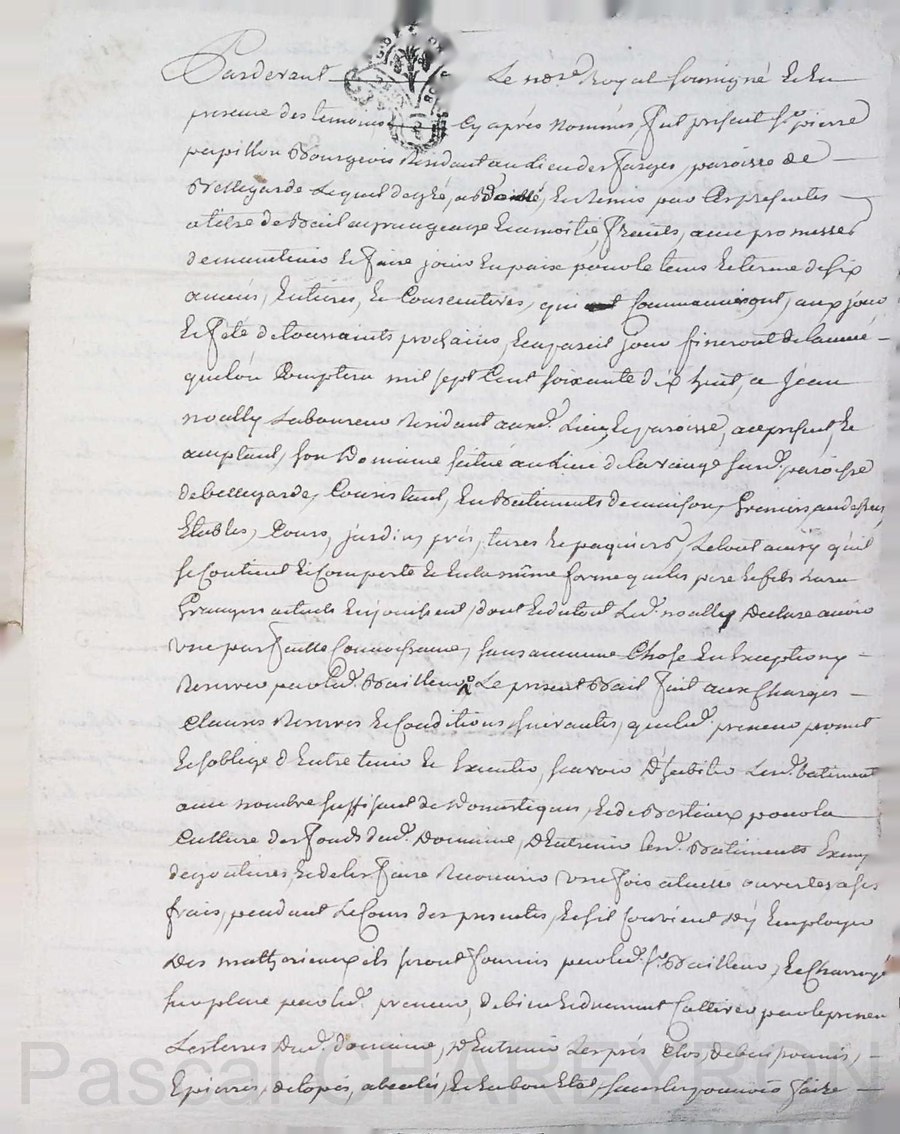 Pardevant Le nore. Royal soussigné Et En
presence des temoins Cy après nommés fut present sr. pierre
papillon Bourgeois Residant au lieu des farges, paroisse de
Bellegarde Lequel de gré, a Baillé, Et Remis par Ces presentes
a titre de Bail a grangeage Et a moitié fruits, avec promesse
de maintenir Et faire jouir En paix pour le tems Et terme de six
années, Entieres, Et Consecutives, qui Commanceront, aux jour
Et fête de toussaints prochains, Et a pareil jour finiront de l'année
que l'on Comptera mil sept Cent soixante dix huit, a Jean
noally Laboureur Residant aux d. Lieu, Et paroisse, acy present, Et
acceptant, son Domaine situé au Lieu de la susd. paroisse
de bellegarde, Consistant, En Batiments de maison, Greniers au dessus,
Etables, Cours, jardins, prés, terres Et paquiers, Le tout ainsy qu'il
se Contient Et Comporte Et En la même forme que les pere Et fils
Grangers actuels En jouissent, dont Et du tout Led. noally Declare avoir
Une parfaitte Connoissance, sans aucune Chose En Exception, ny
Reserver par led. Bailleur, Le present Bail fait aux Charges
Clauses Reserves Et Conditions suivantes, que led. preneur promet
Et s'oblige d'Entretenir Et Executer, sçavoir D'habiter Lesd. batiments
avec nombre suffisant de Domestiques, Et de Bestiaux pour la
Culture des fonds dud. Domaine, D'Entretenir lesd. Batiments Exempts
de goutieres, Et de les faire Recouvrir Une fois a tuille ouverte, a ses
frais, pendant Le Cours des presentes, Et s'il Convient d'y Employer
Des matheriaux ils seront fournis par led. sr. Bailleur, Et Charroyés
sur place par led. preneur, de bien Et duement Cultiver par le preneur
Les terres Dud. domaine, D'Entretenir Les prés Clos,
Epierrés, Et En bon Etat, sans les pouvoir faire
Pascal CHAREYRON